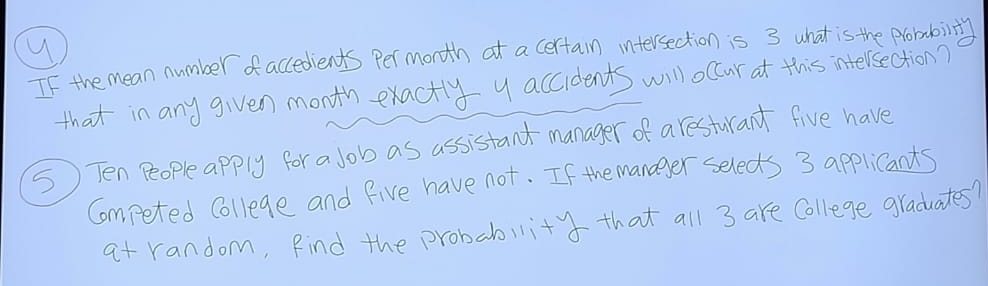 4
IF the mean number of accedients Per month at a certain intersection is 3 what is the probability
that in any given month exactly 4 accidents will occur at this intersection?
5 Ten People apply for a Job as assistant manager of a resturant five have
Competed College and five have not. If the manager selects 3 applicants
at random, find the probability that all 3 are College graduates?